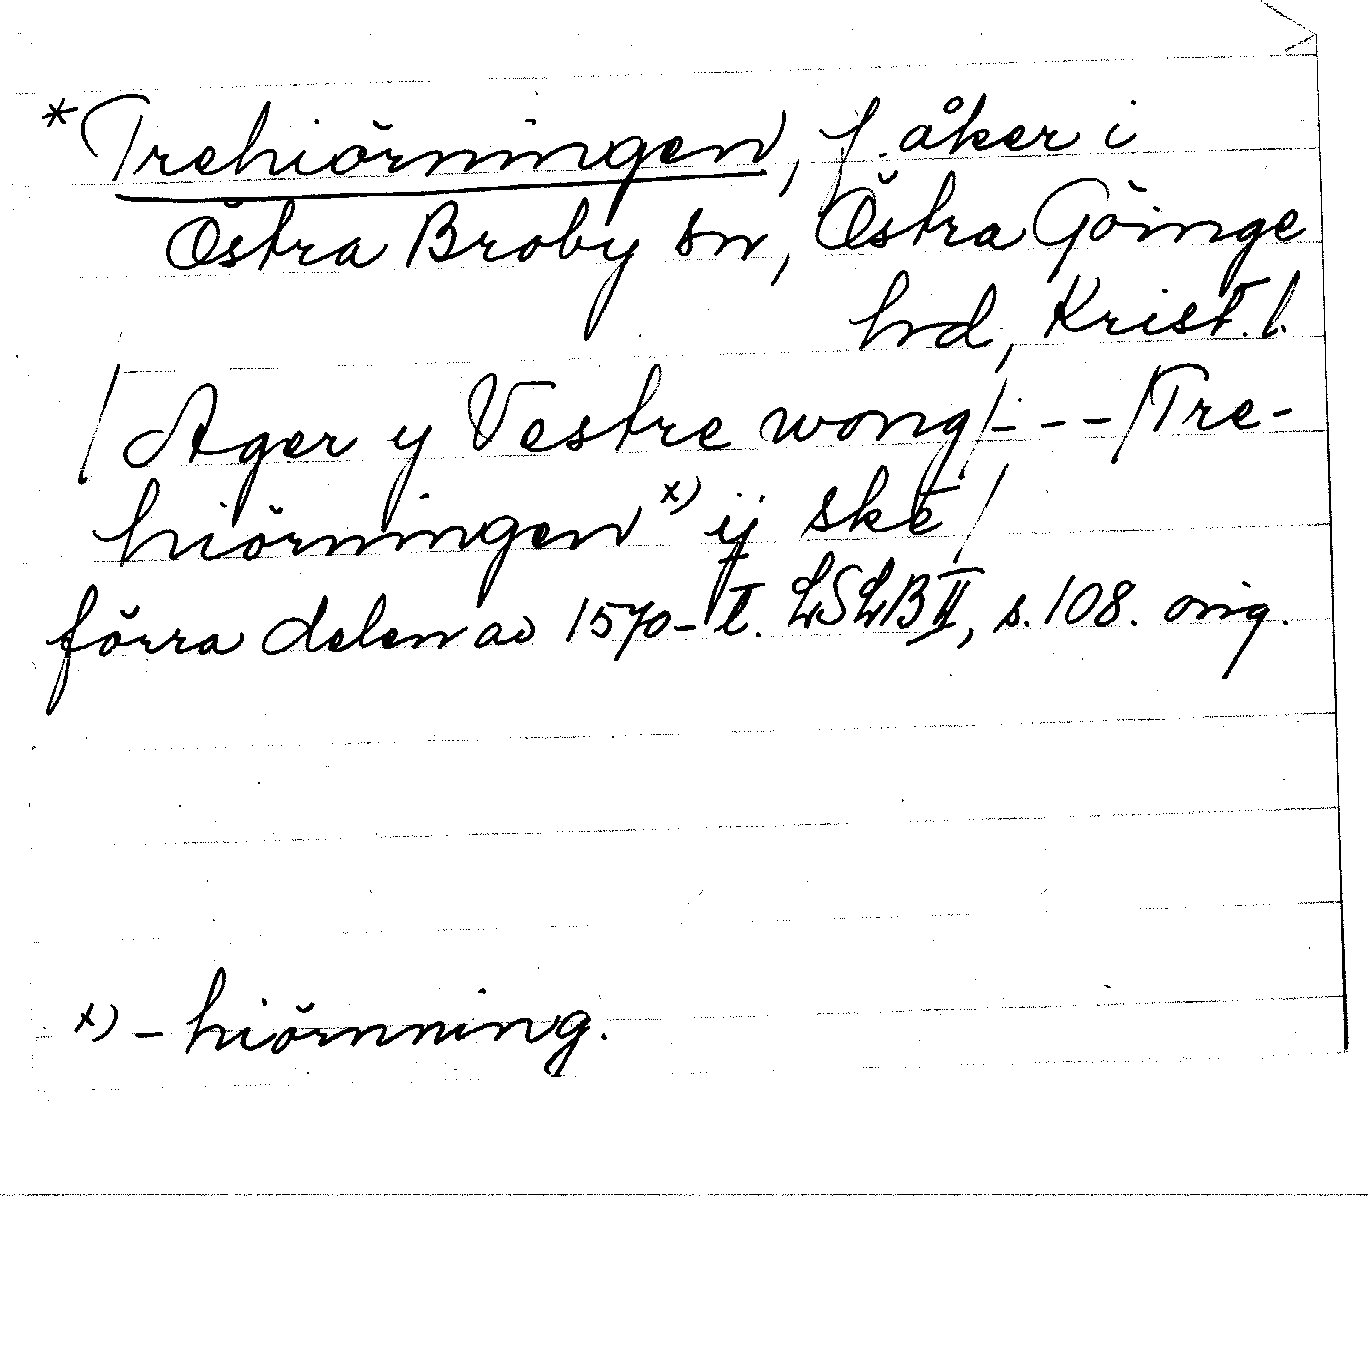 *Trehiörningen, f. åker i
Östra Broby sn, Östra Göinge
hd, Krist. l.
/Ager y Vestre wong/- - -/Tre-
hiörningen x) ij ske/
förra delen av 1570-t. LSLB II, s. 108. orig.
x) -hiörnning.